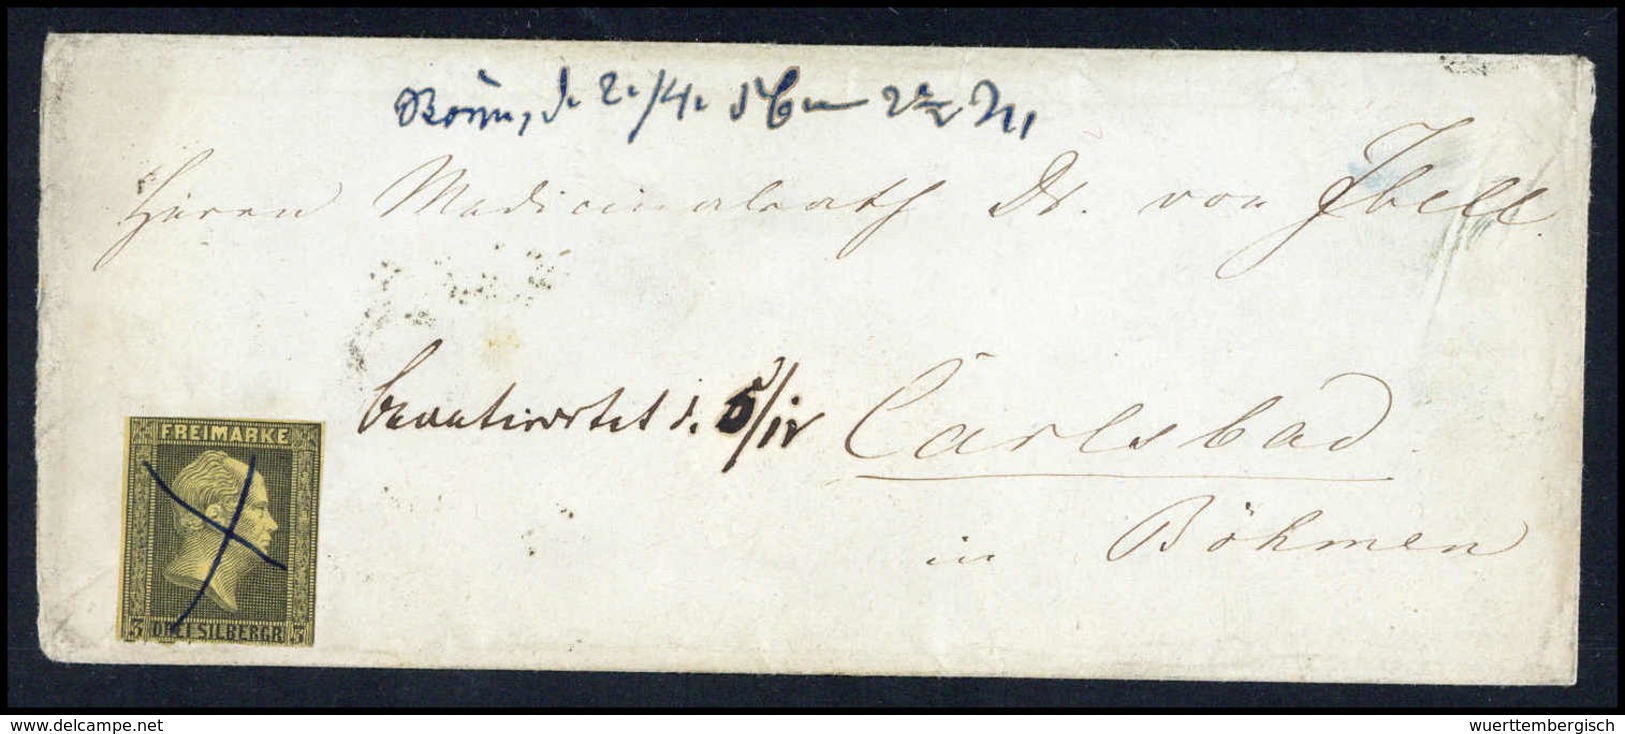 Bonn, d. 2./4. 56
Herrn Medicinalrath Dr. von Ibell
beantwortet d. 5/IV
Carlsbad
in Böhmen
FREIMARKE
3 DREI SILBERGR 3
www.delcampe.net
wuerttembergisch